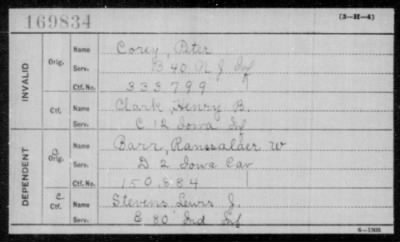 169834
(3-H-4)
INVALID
Orig. Name Corey, Peter
Serv. B 40 N J Inf
Ctf. No. 333799
Ctf. Name Clark, Henry B.
Serv. C 12 Iowa Inf
DEPENDENT
Orig. Name Barr, Ranssalaer W
Serv. D 2 Iowa Cav
Ctf. No. 150,884
Ctf. C Name Stevens Lewis J.
Serv. E 80 Ind Inf